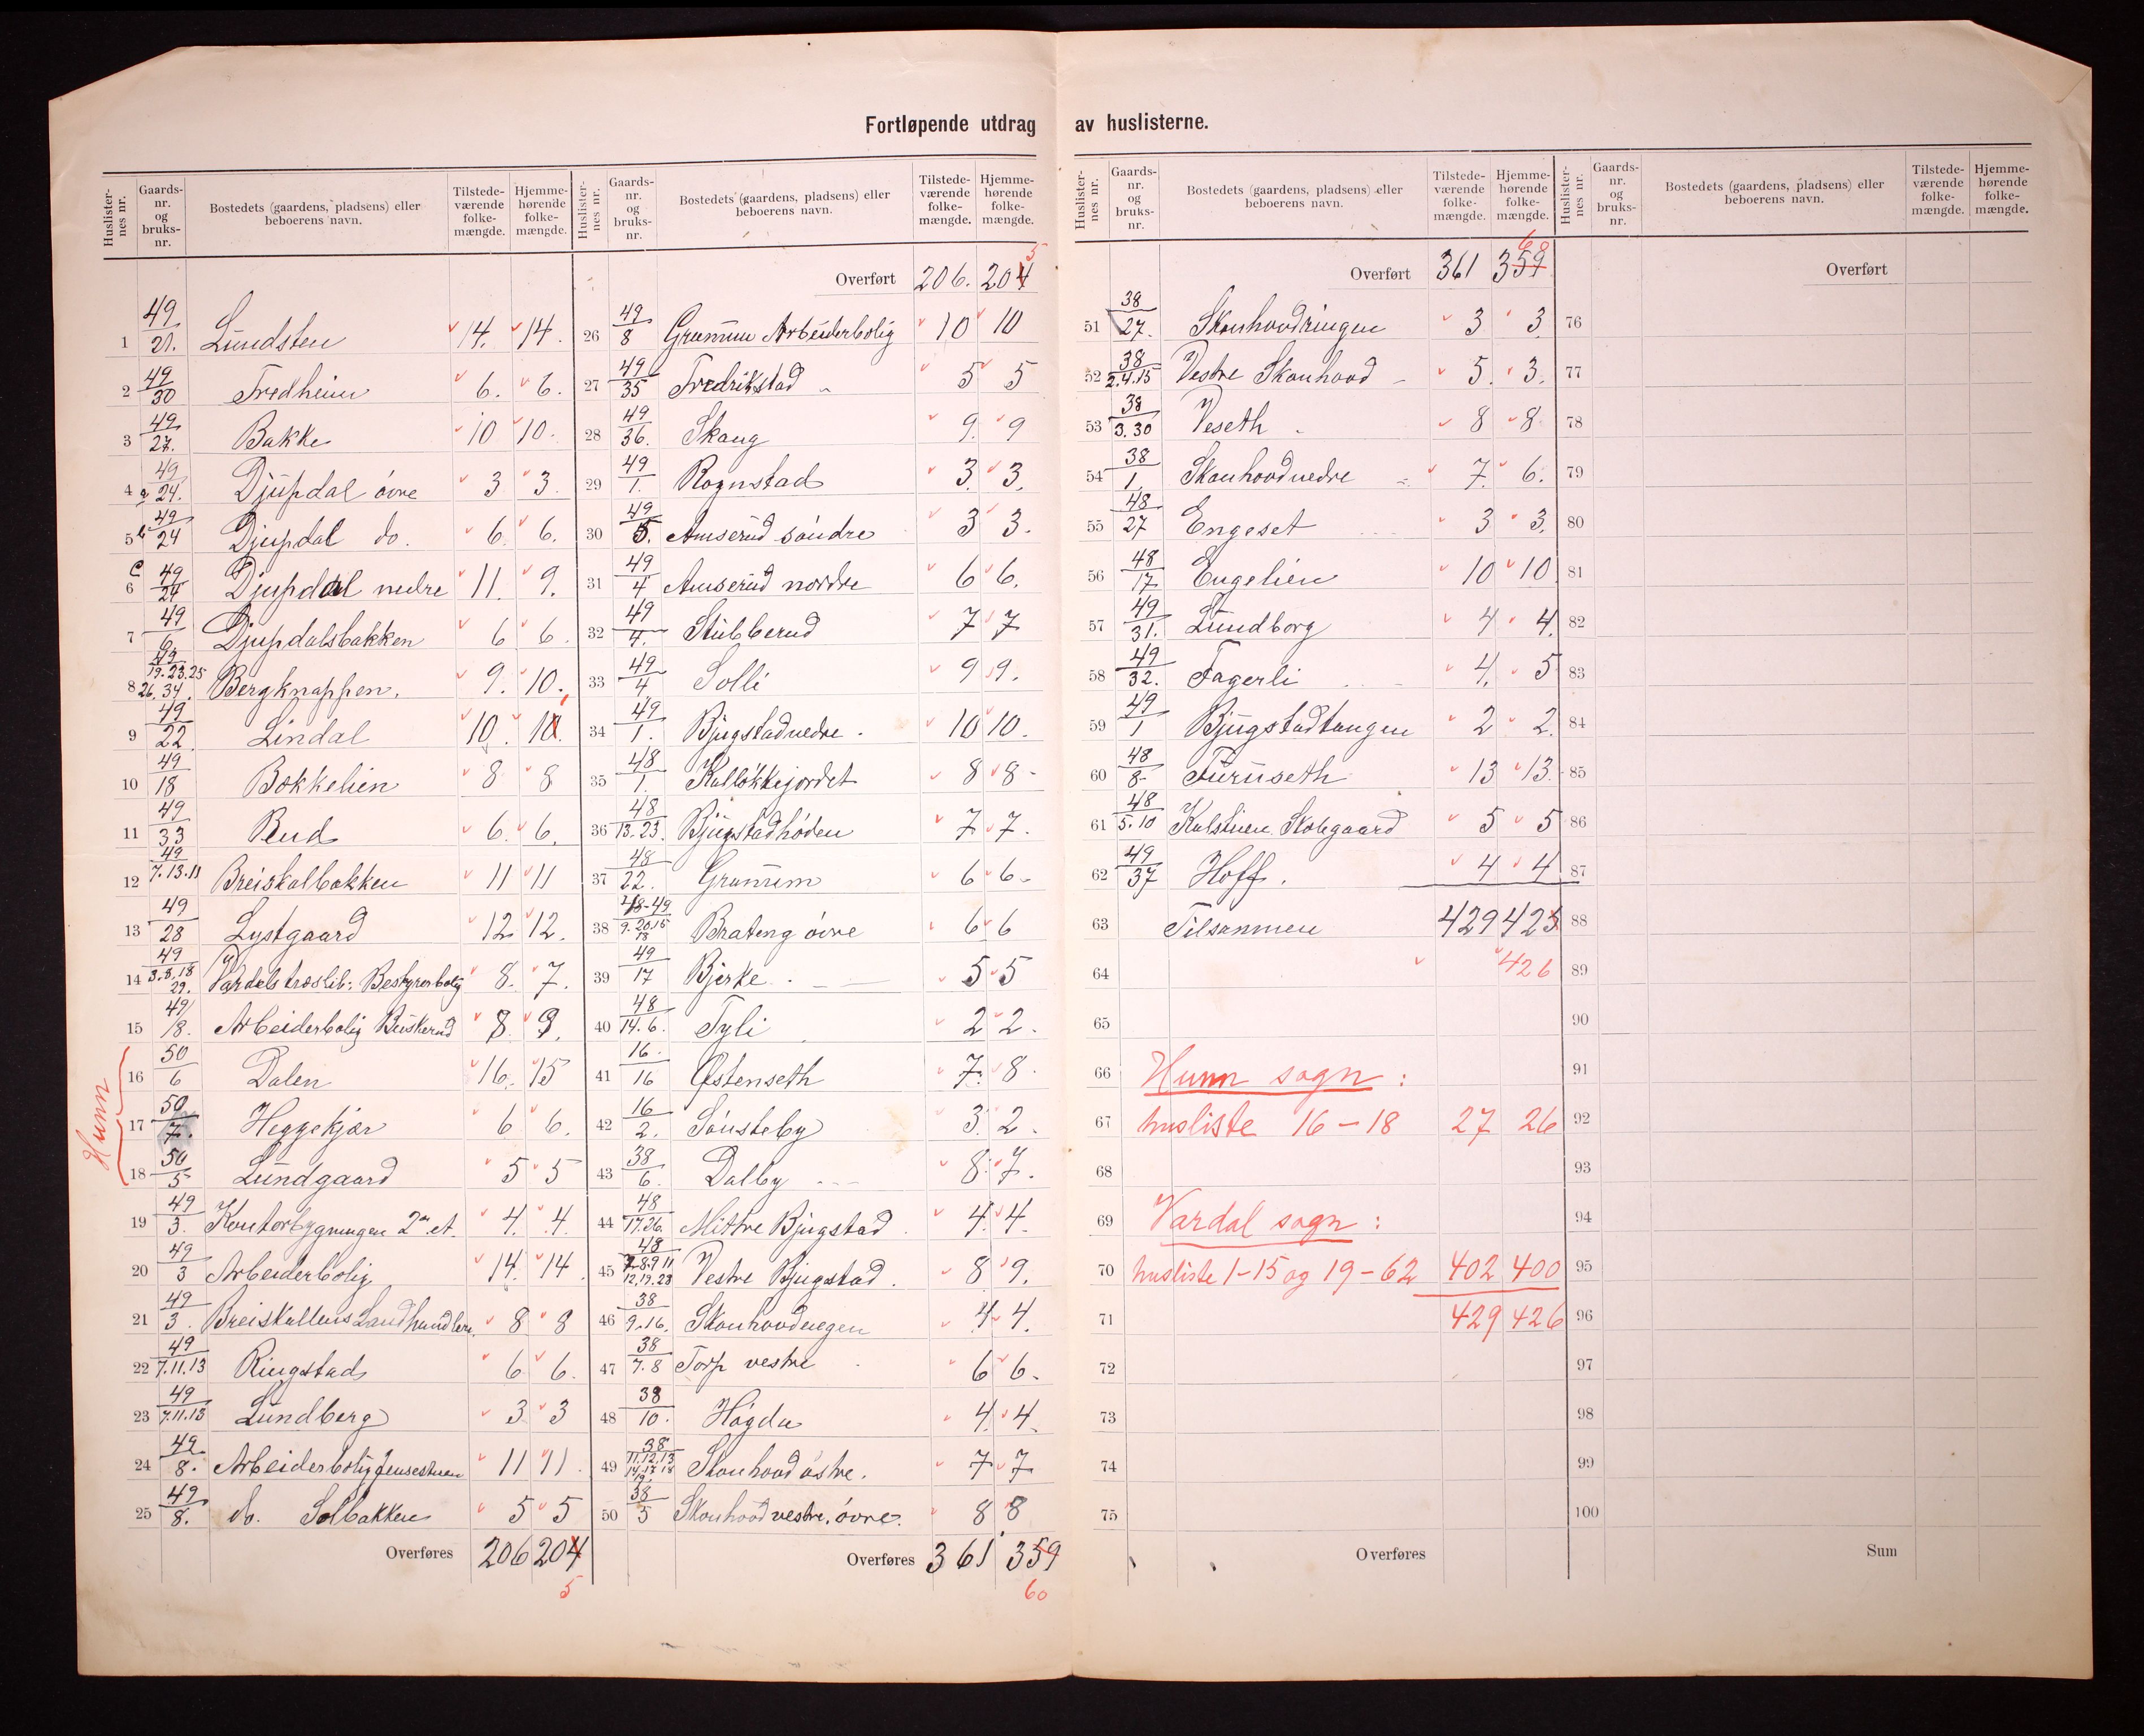 Fortløpende utdrag av huslisterne.
Huslister-nes nr. | Gaards-nr. og bruks-nr. | Bostedets (gaardens, pladsens) eller beboerens navn. | Tilstede-værende folke-mængde. | Hjemme-hørende folke-mængde.
1 49/21. Lundsten 14. 14.
2 49/30 Fredheim 6. 6.
3 49/27. Bakke 10 10.
4 a 49/24. Djupdal övre 3 3.
5 b 49/24 Djupdal do. 6. 6.
6 c 49/24 Djupdal nedre 11. 9.
7 49/6 Djupdalsbakken 6 6.
8 49/19.23.25 26.34. Bergknappen. 9. 10.
9 49/22. Lindal 10.
10 49/18 Bökkelien 8 8
11 49/33 Rud 6. 6.
12 49/7.13.11 Breiskalbakken 11 11
13 49/28 Lystgaard 12 12.
14 49/3.8.18 29. Vardals træslib: Bestyrerbolig 8. 7.
15 49/18. Arbeiderbolig Buskerud 8. 9.
Hunn
16 50/6 Dalen 16. 15
17 50/7. Heggekjær 6 6.
18 50/5 Lundgaard 5 5
19 49/3. Kontorbygningen 2 et. 4. 4.
20 49/3 Arbeiderbolig 14. 14.
21 49/3. Breiskallens Landhandleri 8 8
22 49/7.11.13 Ringstad 6 6.
23 49/7.11.13 Lundberg 3 3
24 49/8. Arbeiderbolig Jensestuen 11 11.
25 49/8. do. Solbakken 5 5
Overføres 206 204
5
Huslister-nes nr. | Gaards-nr. og bruks-nr. | Bostedets (gaardens, pladsens) eller beboerens navn. | Tilstede-værende folke-mængde. | Hjemme-hørende folke-mængde.
5
Overført 206. 204
26 49/8 Grumm Arbeiderbolig 10 10
27 49/35 Fredrikstad 5 5
28 49/36. Skaug 9. 9
29 49/1. Rognstad 3. 3.
30 49/5. Amserud söndre 3 3.
31 49/4 Amserud nordre 6 6.
32 49/4. Stubberud 7 7
33 49/4 Solli 9 9.
34 49/1. Bjugstad nedre. 10 10.
35 48/1. Kallökkejordet 8 8
36 48/13.23. Bjugstadhöden 7 7.
37 48/22. Grumm 6 6
38 48-49/9.20.15 18 Brateng övre 6 6
39 49/17 Bjerke. 5 5
40 48/14.6. Tyli 2 2.
41 16/16 Østenseth 7. 8
42 16/2. Sönsteby 3. 2.
43 38/6. Dalby 8. 7.
44 48/17.26. Mittre Bjugstad 4. 4.
45 48/7.8.9.11 12.19.23 Vestre Bjugstad. 8 9.
46 38/9.16. Skonhovdengen 4 4.
47 38/7.8 Torp vestre 6 6.
48 38/10. Högda 4. 4.
49 38/11.12.13 14.17.18 19. Skonhovd östre. 7 7
50 38/5 Skonhovd vestre, övre. 8 8
Overføres 361 359
60
Huslister-nes nr. | Gaards-nr. og bruks-nr. | Bostedets (gaardens, pladsens) eller beboerens navn. | Tilstede-værende folke-mængde. | Hjemme-hørende folke-mængde.
60
Overført 361 359
51 38/27. Skonhovdringen 3 3.
52 38/2.4.15 Vestre Skonhovd 5. 3.
53 38/3.30 Veseth 8 8
54 38/1. Skonhovd nedre 7. 6.
55 48/27 Engeset 3 3.
56 48/17. Engelien 10 10.
57 49/31. Lundborg 4 4.
58 49/32. Fagerli 4. 5
59 49/1 Bjugstadtangen 2 2.
60 48/8 Furuseth 13 13.
61 48/5.10 Kalstuen Skolegaard 5 5
62 49/37 Hoff. 4 4
63 Tilsammen 429 425
64 426
65
66 Hunn sogn:
67 husliste 16-18 27 26
68
69 Vardal sogn:
70 husliste 1-15 og 19-62 402 400
71 429 426
72
73
74
75
Overføres
Huslister-nes nr. | Gaards-nr. og bruks-nr. | Bostedets (gaardens, pladsens) eller beboerens navn. | Tilstede-værende folke-mængde. | Hjemme-hørende folke-mængde.
Overført
76
77
78
79
80
81
82
83
84
85
86
87
88
89
90
91
92
93
94
95
96
97
98
99
100
Sum